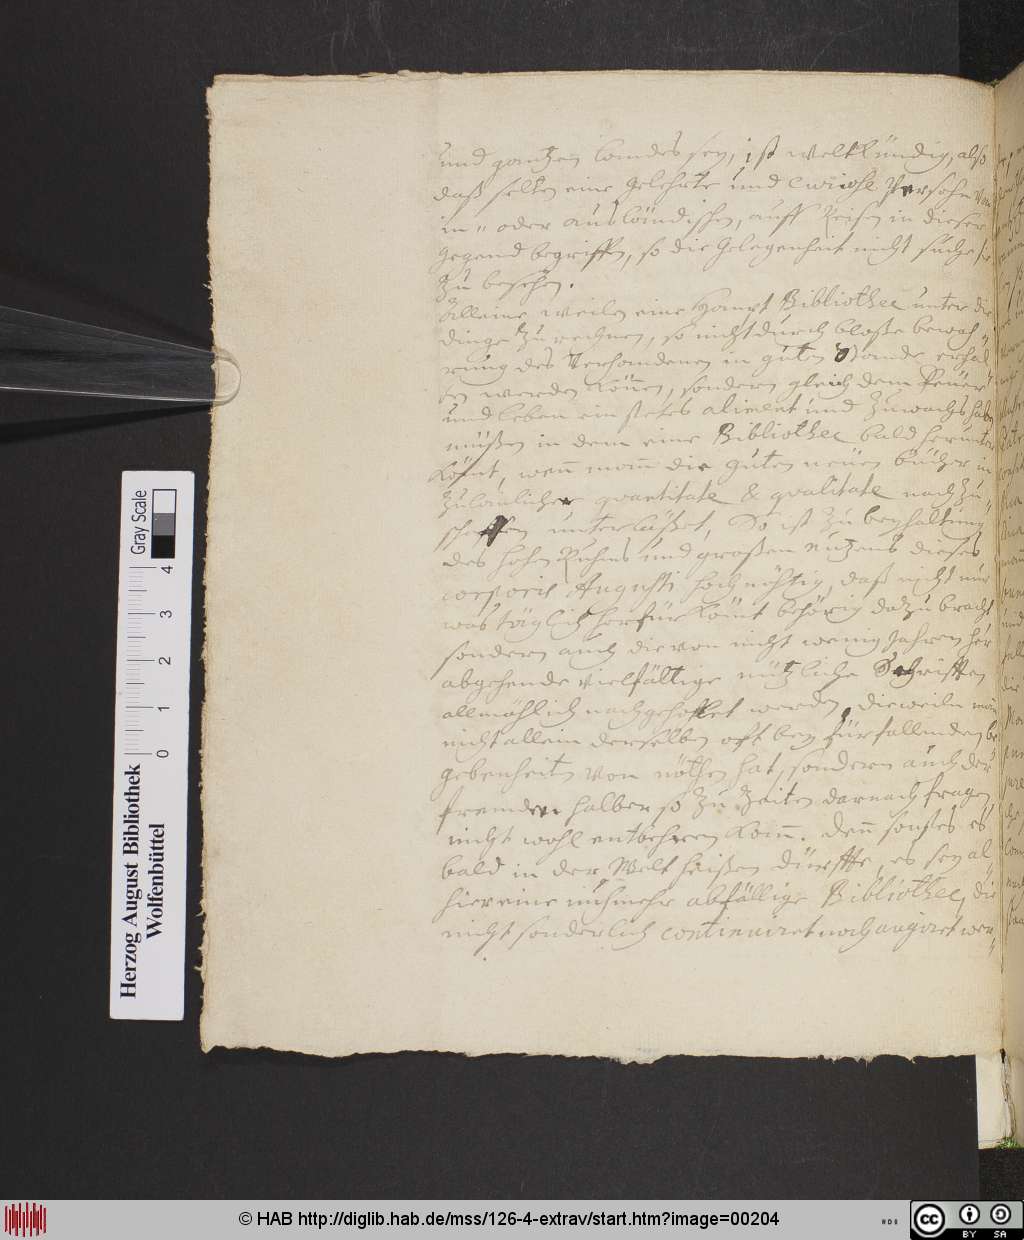 und gantzen landes sey, ist weltkündig, also
daß selten eine gelehrte und curiose Persohn von
in- oder ausländischen, auff Reisen in dieser
gegend begriffen, so die gelegenheit nicht suche sie
zu besehen.
Alleine weilen eine Haupt Bibliothec unter die
dinge zu rechnen, so nicht durch bloße bewah-
rung des Verhandenen in guten Stande erhal-
ten werden können, sondern gleich dem feüer
und leben ein stetes aliment und Zuwachs haben
müßen in dem eine Bibliothec bald herunter
kömt, wenn man die guten neüen bücher in
zulänlicher quantitate & qualitate nachzu-
schaffen unterläßet, So ist zu beyhaltung
des hohen Ruhms und großen nutzens dieses
corporis Augusti hochnöhtig, daß nicht nur
was täglich herfür kömt behörig dazu bracht
sondern auch die von nicht wenig Jahren her
abgehende vielfältige nützliche Schrifften
allmählich nachgehohlet werden, dieweiln man
nicht allein derselben offt bey fürfallenden be-
gebenheiten von nöthen hat, sondern auch der
frembden halber so zu Zeiten darnach fragen,
nicht wohl entbehren kan. Denn sonsten es
bald in der Welt heißen dürffte, es sey al-
hier eine nuhmehr abfällige Bibliothec, die
nicht sonderlich continuiret noch augiret wer-
Herzog August Bibliothek
Wolfenbüttel
Gray Scale
0 1 2 3 4
© HAB http://diglib.hab.de/mss/126-4-extrav/start.htm?image=00204
cc BY SA